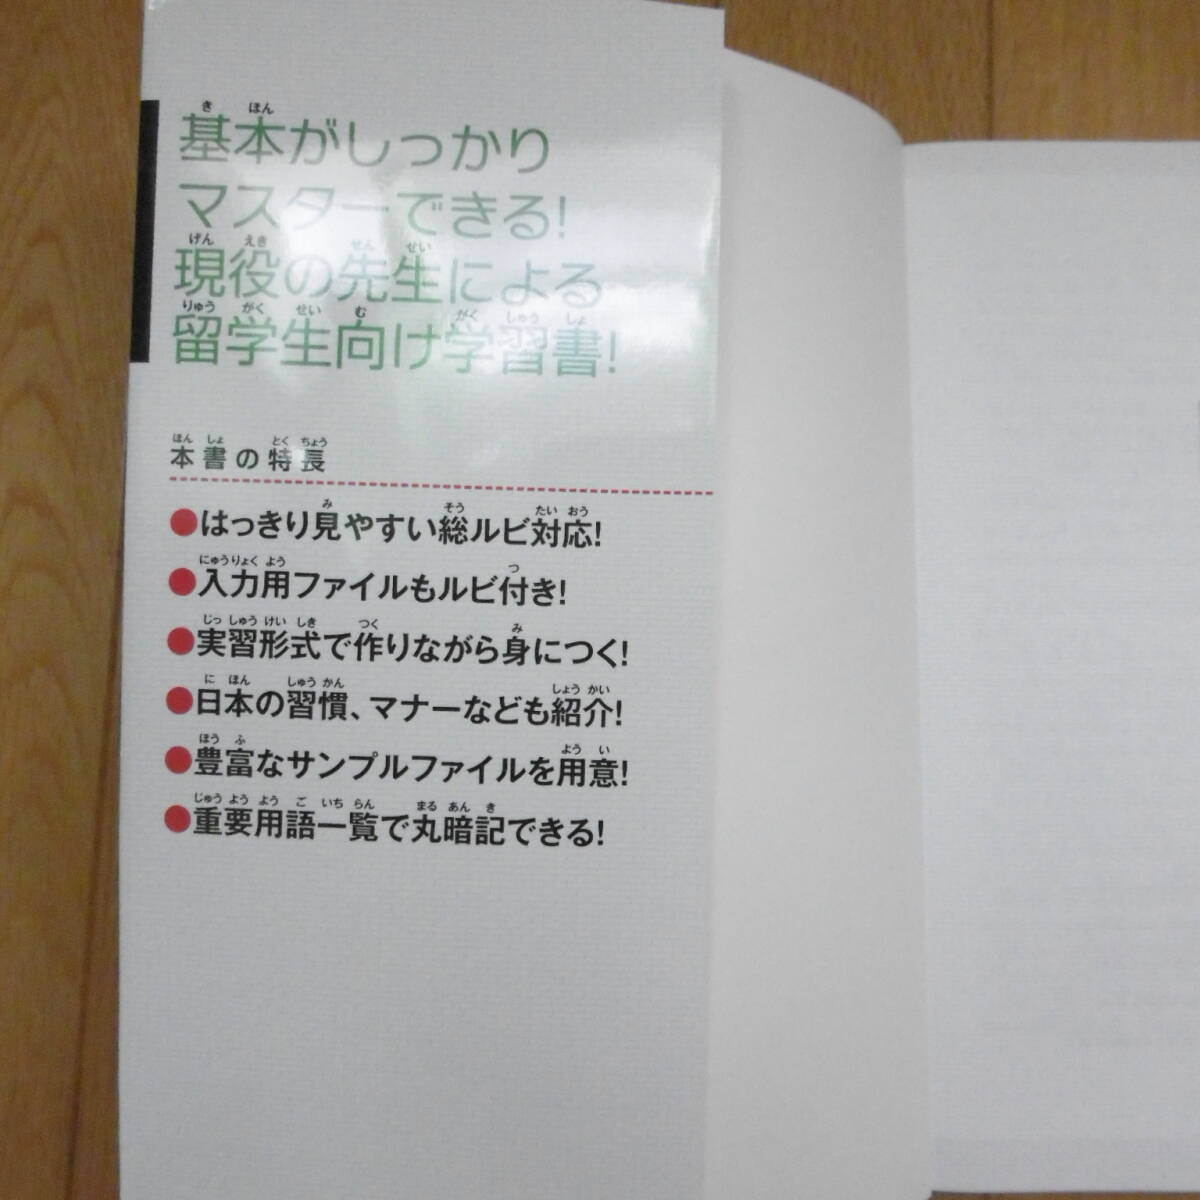 基本がしっかり
マスターできる!
現役の先生による
留学生向け学習書!
本書の特長
●はっきり見やすい総ルビ対応!
●入力用ファイルもルビ付き!
●実習形式で作りながら身につく!
●日本の習慣、マナーなども紹介!
●豊富なサンプルファイルを用意!
●重要用語一覧で丸暗記できる!